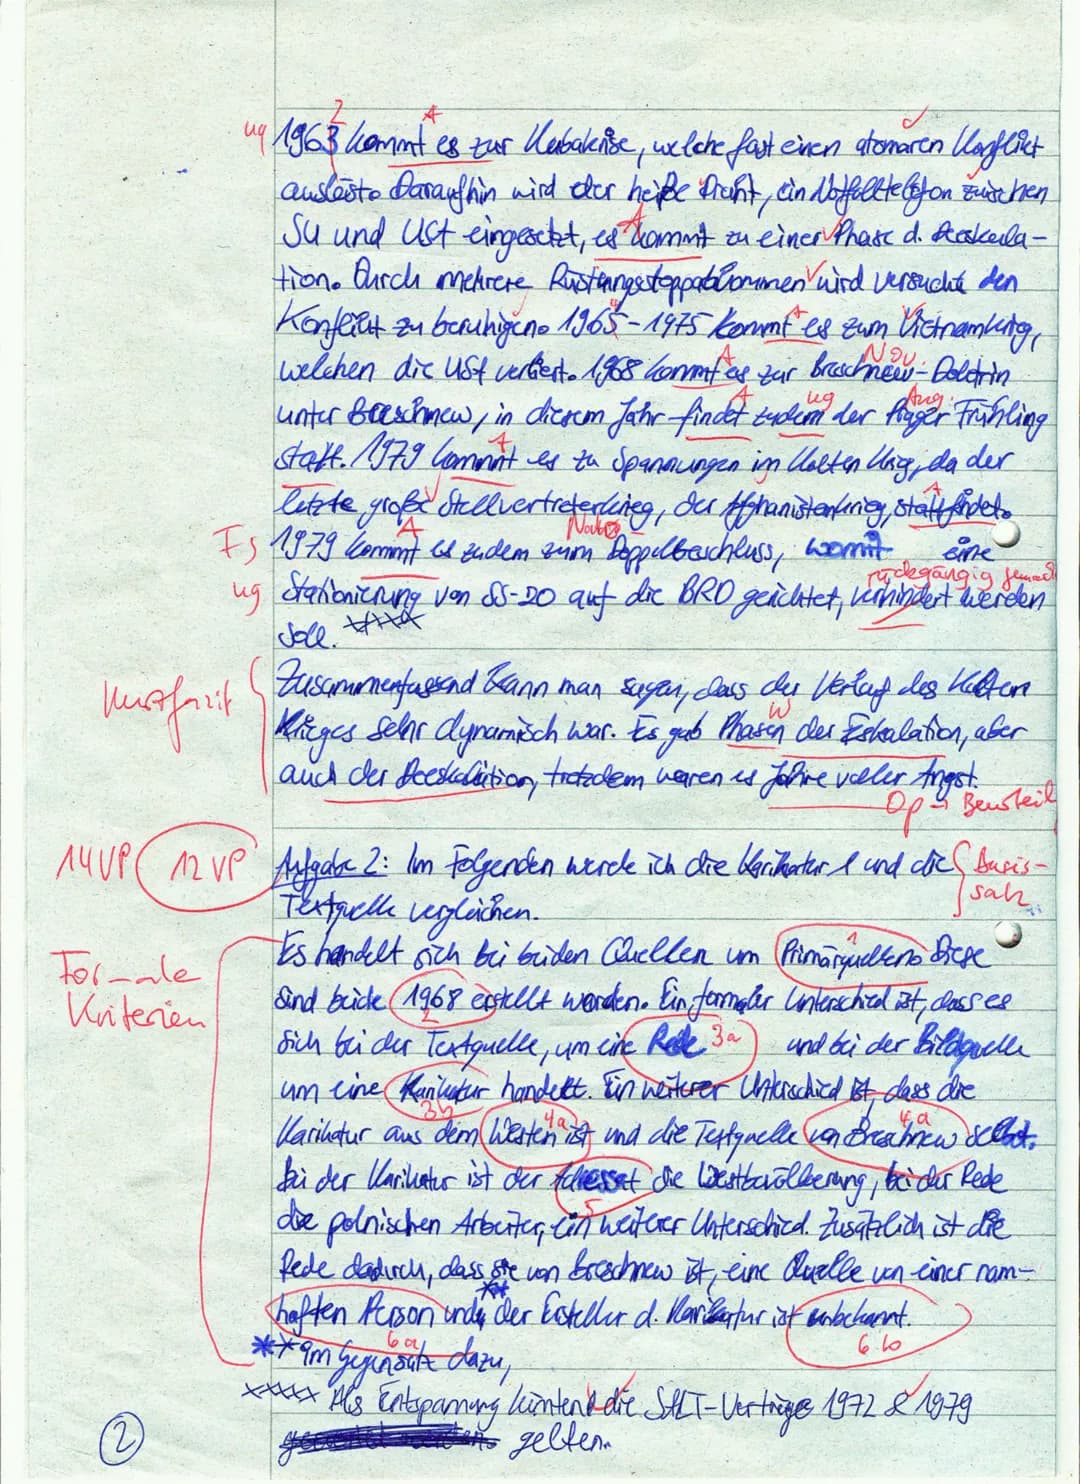 2 A
ug 1963 kommt es zur Kubakrise, welche fast einen atomaren Konflikt
auslöst. Daraufhin wird der heiße Draht, ein Notfalltelefon zwischen
SU und USt eingesetzt, es kommt zu einer Phase d. Deeskala-
tion. Durch mehrere Rüstungsstoppabkommen wird versucht den
Konflikt zu beruhigen. 1965-1975 kommt es zum Vietnamkrieg,
welchen die USt verliert. 1968 kommt es zur Breschnew-Doktrin
A Nov.
unter Breschnew, in diesem Jahr findet zudem der Prager Frühling
A ug Aug.
statt. 1979 kommt es zu Spannungen im Kalten Krieg, da der
letzte große Stellvertreterkrieg, der Afghanistankrieg, stattfindet.
Fs 1979 kommt es zudem zum Doppelbeschluss, womit eine
rückgängig
ug Stationierung von SS-20 auf die BRD gerichtet, verhindert werden
soll. xxxx
Kurzfazit
Zusammenfassend kann man sagen, dass der Verlauf des Kalten
Krieges sehr dynamisch war. Es gab Phasen der Eskalation, aber
auch der Deeskalation, trotzdem waren es Jahre voller Angst.
Op → Beurteil
14VP 12 VP Aufgabe 2: Im Folgenden werde ich die Karikatur 1 und die Basis-
Textquelle vergleichen. satz
Formale Kriterien
Es handelt sich bei beiden Quellen um Primärquellen. Diese
sind beide 1968 erstellt worden. Ein formaler Unterschied ist, dass es
sich bei der Textquelle, um eine Rede 3a und bei der Bildquelle
um eine Karikatur handelt. Ein weiterer Unterschied ist, dass die
3b
Karikatur aus dem Westen ist und die Textquelle von Breschnew selbst.
4a 4a
Bei der Karikatur ist der Adressat die Westbevölkerung, bei der Rede
5
die polnischen Arbeiter, ein weiterer Unterschied. Zusätzlich ist die
Rede dadurch, dass sie von Breschnew ist, eine Quelle von einer nam-
**
haften Person und der Ersteller d. Karikatur ist unbekannt.
6a 6.b
** im Gegensatz dazu,
xxxx Als Entspannung könnten die SALT-Verträge 1972 & 1979
gelten.
2